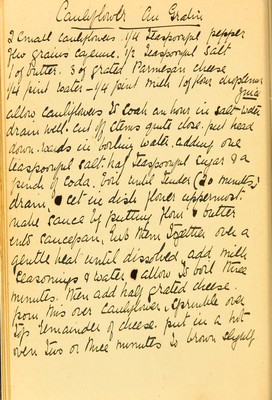 Cauliflower Au Gratin
2 small cauliflowers. 1/4 teaspoonful pepper
few grains cayenne. 1/2 teaspoonful salt
1 of butter. 3 of grated Parmesan cheese
1/4 pint water - 1/4 pint milk 1 of flour drop lemon
juice
allow cauliflowers to soak an hour in salt water
drain well. cut off stems quite close. put head
down-wards in boiling water, adding one
teaspoonful salt. half teaspoonful sugar & a
pinch of soda. boil until tender (20 minutes)
drain, & set in dish flower uppermost.
make sauce by putting flour & butter
into saucepan, rub them together over a
gentle heat until dissolved, add milk
seasonings & water & allow to boil three
minutes. then add half grated cheese.
pour this over cauliflower, sprinkle over
top remainder of cheese. put in a hot
oven two or three minutes to brown slightly